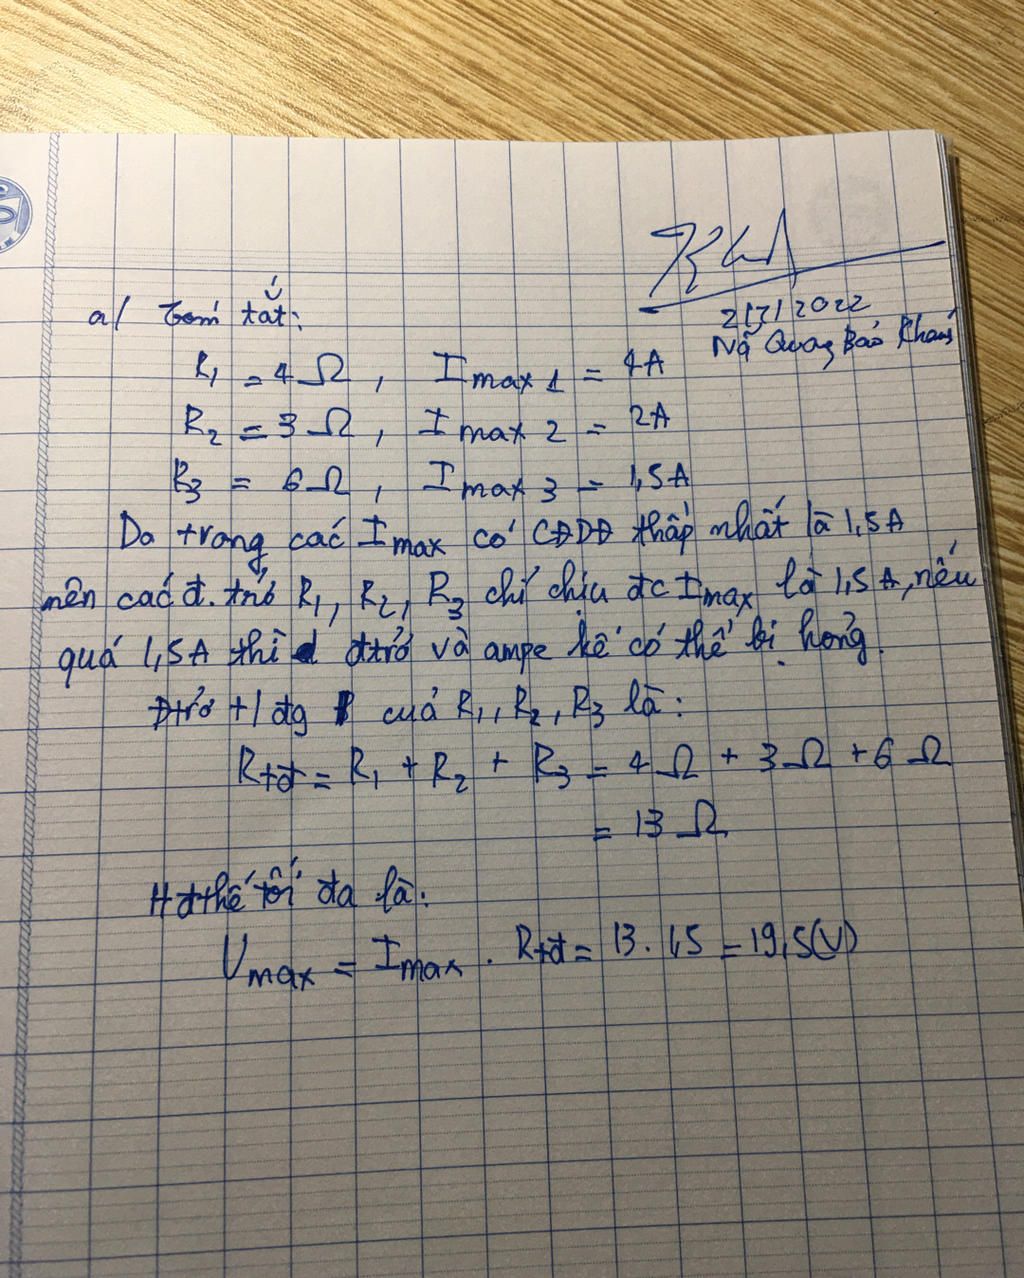 2/7/2022
Ng Quang Bảo Khanh
a/ Tóm tắt:
R1 = 4 Ω, Imax 1 = 4A
R2 = 3 Ω, Imax 2 = 2A
R3 = 6 Ω, Imax 3 = 1,5A
Do trong các Imax có CĐDĐ thấp nhất là 1,5A
nên các đ.trở R1, R2, R3 chỉ chịu đc Imax là 1,5A, nếu
quá 1,5A thì đtrở và ampe kế có thể bị hỏng.
Đtrở tđg của R1, R2, R3 là:
Rtđ = R1 + R2 + R3 = 4 Ω + 3 Ω + 6 Ω
= 13 Ω
Hđthế tối đa là:
Umax = Imax . Rtđ = 13 . 1,5 = 19,5(V)